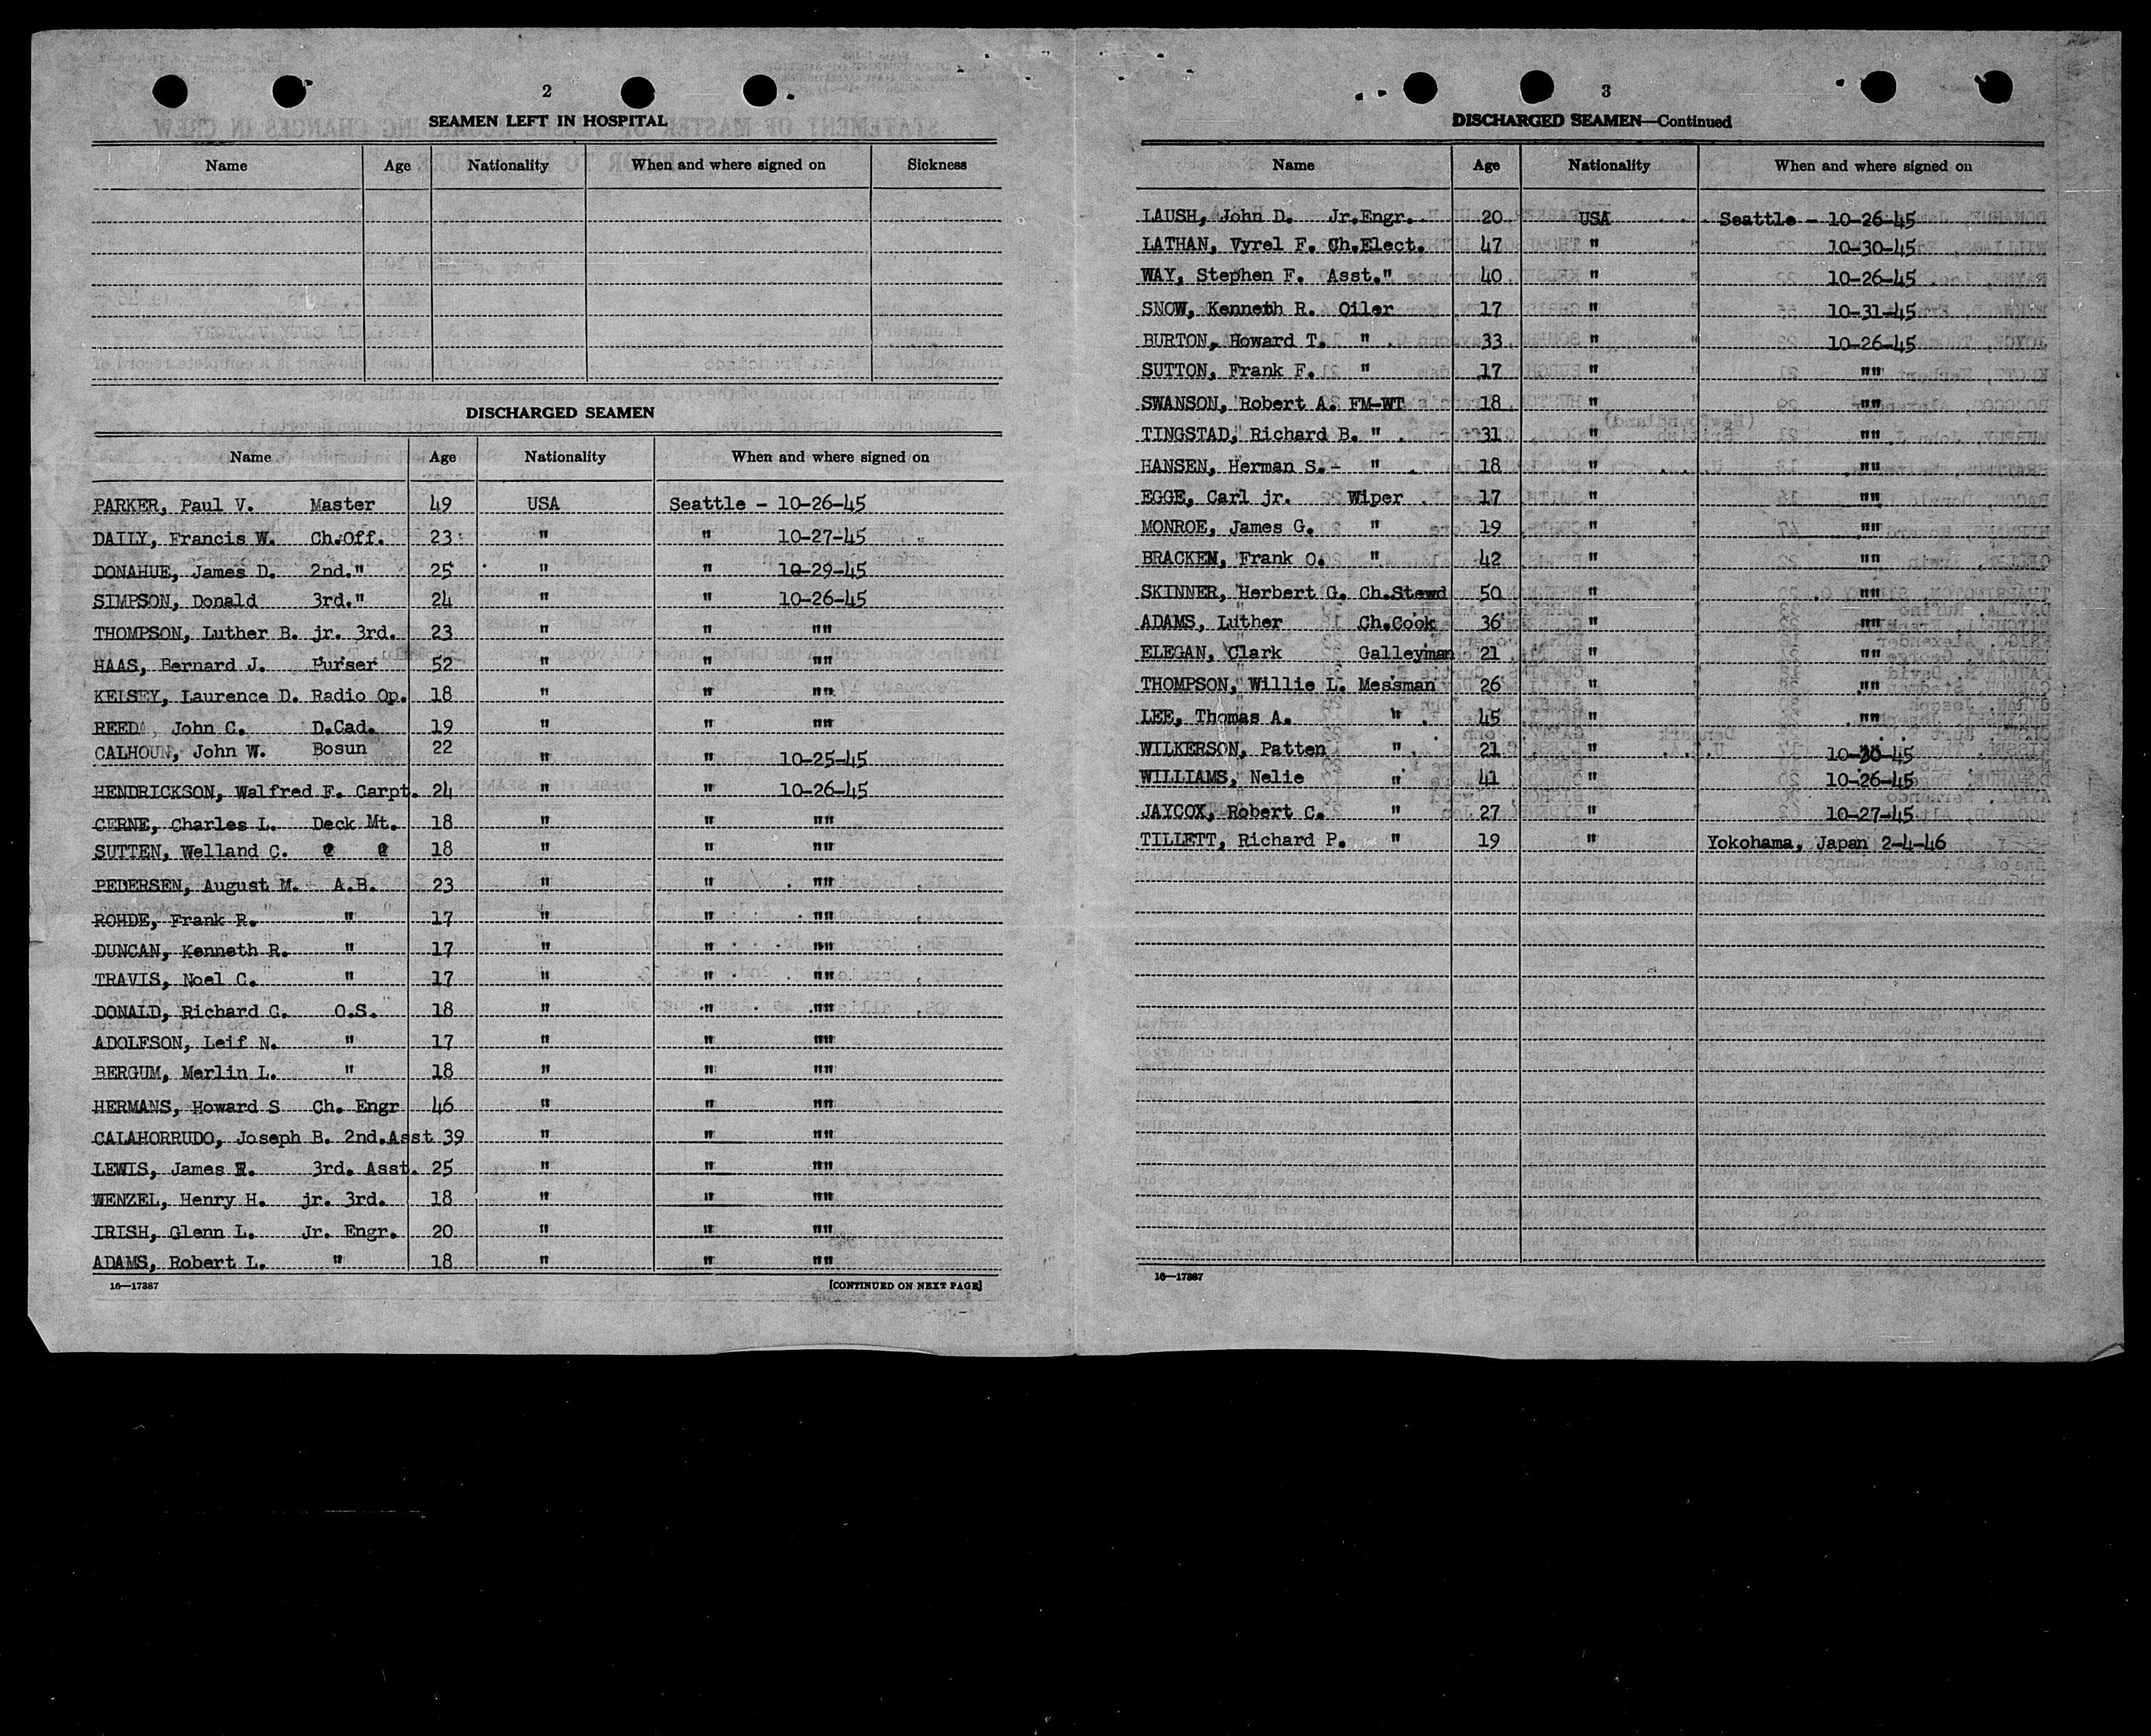 2
SEAMEN LEFT IN HOSPITAL
Name Age Nationality When and where signed on Sickness
DISCHARGED SEAMEN
Name Age Nationality When and where signed on
PARKER, Paul V. Master 49 USA Seattle - 10-26-45
DAILY, Francis W. Ch.Off. 23 " " 10-27-45
DONAHUE, James D. 2nd." 25 " " 10-29-45
SIMPSON, Donald 3rd." 24 " " 10-26-45
THOMPSON, Luther B. jr. 3rd. 23 " " ""
HAAS, Bernard J. Purser 52 " " ""
KELSEY, Laurence D. Radio Op. 18 " " ""
REED, John C. D.Cad. 19 " " ""
CALHOUN, John W. Bosun 22 " " 10-25-45
HENDRICKSON, Walfred F. Carpt. 24 " " 10-26-45
CERNE, Charles L. Deck Mt. 18 " " ""
SUTTEN, Welland C. 18 " " ""
PEDERSEN, August M. A.B. 23 " " ""
ROHDE, Frank R. " 17 " " ""
DUNCAN, Kenneth R. " 17 " " ""
TRAVIS, Noel C. " 17 " " ""
DONALD, Richard C. O.S. 18 " " ""
ADOLFSON, Leif N. " 17 " " ""
BERGUM, Merlin L. " 18 " " ""
HERMANS, Howard S Ch. Engr 46 " " ""
CALAHORRUDO, Joseph B. 2nd.Asst 39 " " ""
LEWIS, James E. 3rd. Asst. 25 " " ""
WENZEL, Henry H. jr. 3rd. 18 " " ""
IRISH, Glenn L. Jr. Engr. 20 " " ""
ADAMS, Robert L. " 18 " " ""
16—17387 [CONTINUED ON NEXT PAGE]
3
DISCHARGED SEAMEN—Continued
Name Age Nationality When and where signed on
LAUSH, John D. Jr.Engr. 20 USA Seattle - 10-26-45
LATHAN, Vyrel F. Ch.Elect. 47 " " 10-30-45
WAY, Stephen F. Asst." 40 " " 10-26-45
SNOW, Kenneth R. Oiler 17 " " 10-31-45
BURTON, Howard T. " 33 " " 10-26-45
SUTTON, Frank F. " 17 " ""
SWANSON, Robert A. FM-WT 18 " ""
TINGSTAD, Richard B. " 31 " ""
HANSEN, Herman S.- " 18 " ""
EGGE, Carl jr. Wiper 17 " ""
MONROE, James G. " 19 " ""
BRACKEN, Frank O. " 42 " ""
SKINNER, Herbert G. Ch.Stewd 50 " ""
ADAMS, Luther Ch.Cook 36 " ""
ELEGAN, Clark Galleyman 21 " ""
THOMPSON, Willie L. Messman 26 " ""
LEE, Thomas A. " 45 " ""
WILKERSON, Patten " 21 " 10-30-45
WILLIAMS, Nelie " 41 " 10-26-45
JAYCOX, Robert C. " 27 " 10-27-45
TILLETT, Richard P. " 19 " Yokohama, Japan 2-4-46
16—17387